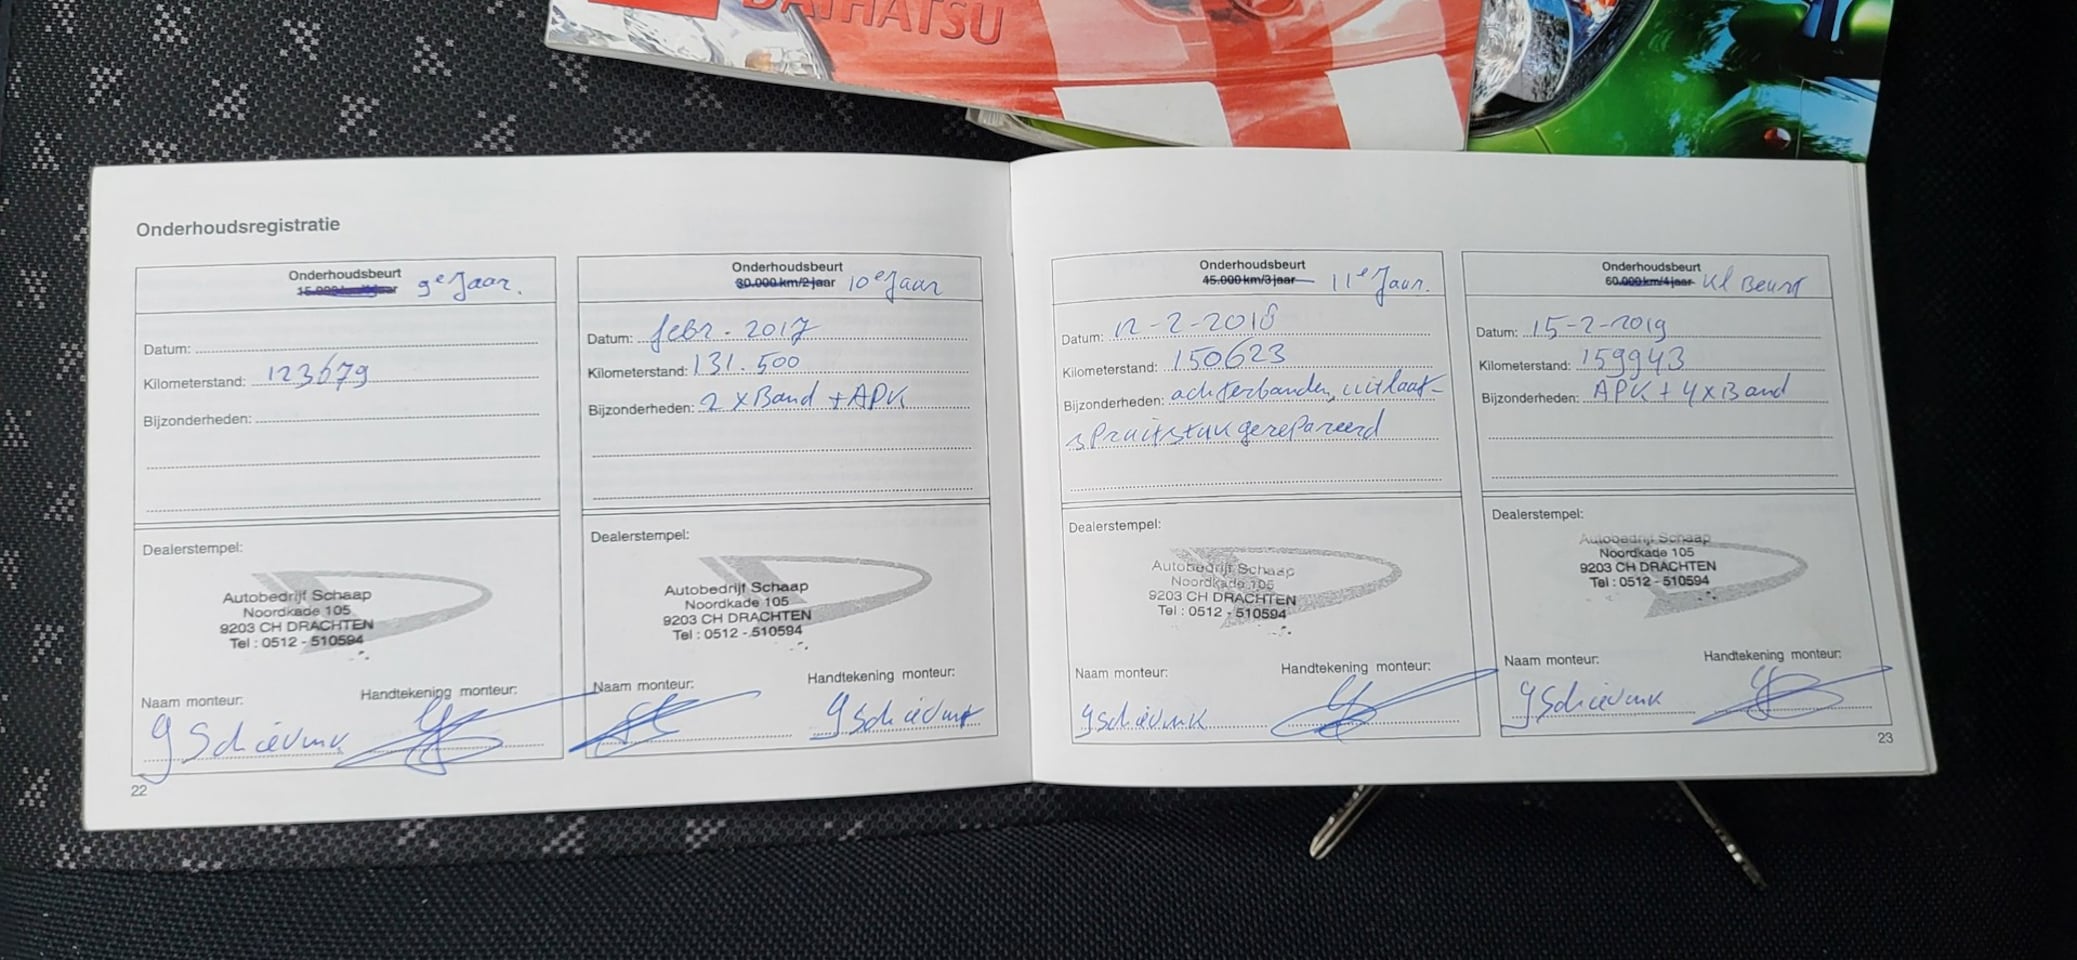 DAIHATSU
Onderhoudsregistratie
Onderhoudsbeurt
15.000 km/1 jaar 9e Jaar.
Datum:
Kilometerstand: 123679
Bijzonderheden:
Dealerstempel:
Autobedrijf Schaap
Noordkade 105
9203 CH DRACHTEN
Tel : 0512 - 510594
Naam monteur: Handtekening monteur:
22
Onderhoudsbeurt
30.000 km/2 jaar 10e Jaar
Datum: febr. 2017
Kilometerstand: 131.500
Bijzonderheden: 2 x Band + APK
Dealerstempel:
Autobedrijf Schaap
Noordkade 105
9203 CH DRACHTEN
Tel : 0512 - 510594
Naam monteur: Handtekening monteur:
Onderhoudsbeurt
45.000 km/3 jaar 11e Jaar.
Datum: 12-2-2018
Kilometerstand: 150623
Bijzonderheden: achterbanden, uitlaat-
spruitstuk gerepareerd
Dealerstempel:
Autobedrijf Schaap
Noordkade 105
9203 CH DRACHTEN
Tel : 0512 - 510594
Naam monteur: Handtekening monteur:
Onderhoudsbeurt
60.000 km/4 jaar Kl Beurt
Datum: 15-2-2019
Kilometerstand: 159943
Bijzonderheden: APK + 4 x Band
Dealerstempel:
Autobedrijf Schaap
Noordkade 105
9203 CH DRACHTEN
Tel : 0512 - 510594
Naam monteur: Handtekening monteur:
23